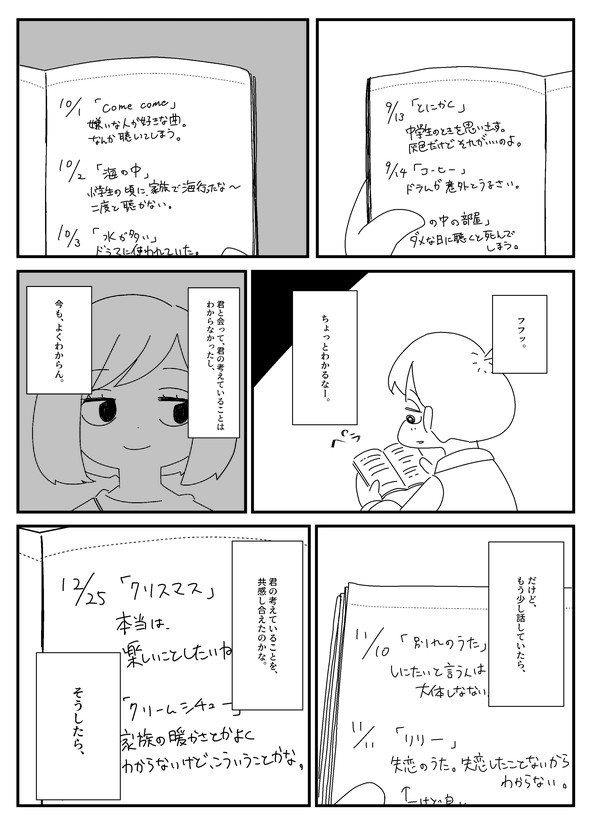 9/13「とにかく」
中学生のときを思い出す。
灰色だけどそれがいいのよ。
9/14「コーヒー」
ドラムが意外とうるさい。
の中の部屋」
ダメな日に聴くと死んで
しまう。
10/1「Come come」
嫌いな人が好きな曲。
なんか聴いてしまう。
10/2「海の中」
小学生の頃に、家族で海行ったな〜
二度と聴かない。
10/3「水が多い」
ドラマに使われていた。
フフッ。
ちょっとわかるなー。
ペラ
君と会って、君の考えていることは
わからなかったし、
今も、よくわからん。
だけど、
もう少し話していたら、
11/10「別れのうた」
しにたいと言う人は
大体しなない
11/11「リリー」
失恋のうた。失恋したことないから
わからない。
君の考えていることを、
共感し合えたのかな。
12/25「クリスマス」
本当は、
楽しいことしたいね
「クリームシチュー」
家族の暖かさとかよく
わからないけど、こういうことかな。
そうしたら、